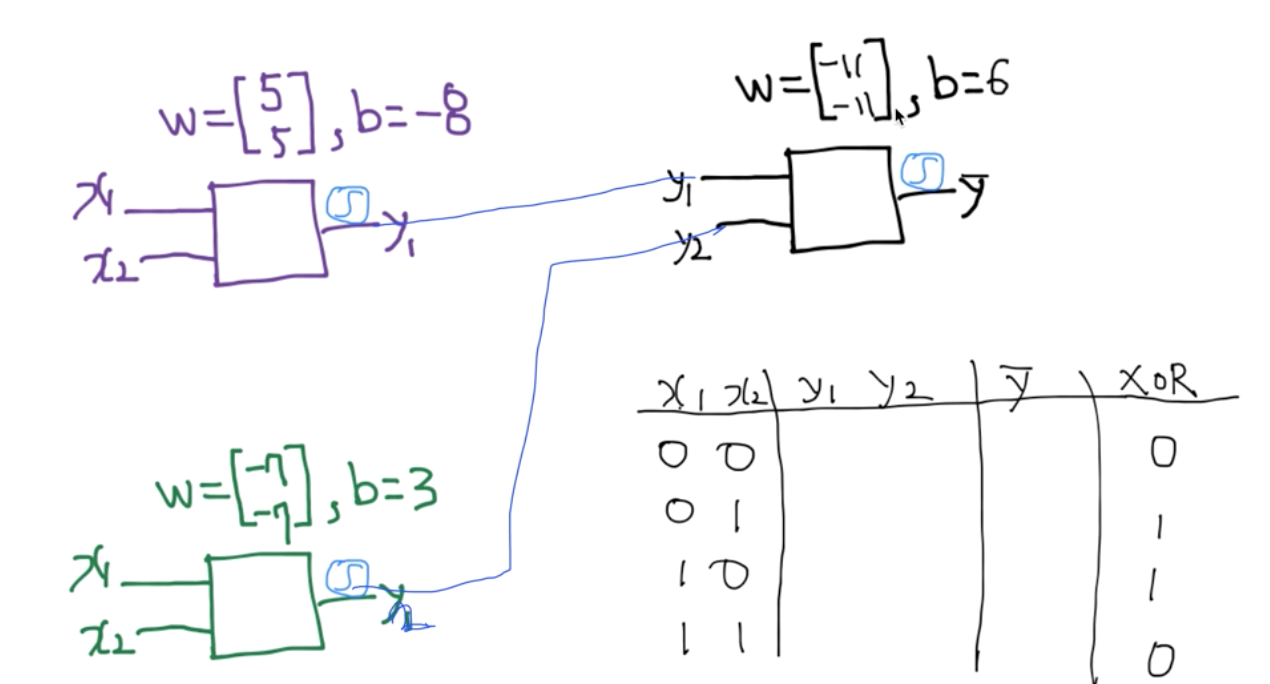 w=[5 5], b=-8
x1
x2
S
y1
w=[-11 -11], b=6
y1
y2
S
y̅
w=[-7 -7], b=3
x1
x2
S
y2
x1 x2 y1 y2 y̅ XOR
0 0 0
0 1 1
1 0 1
1 1 0